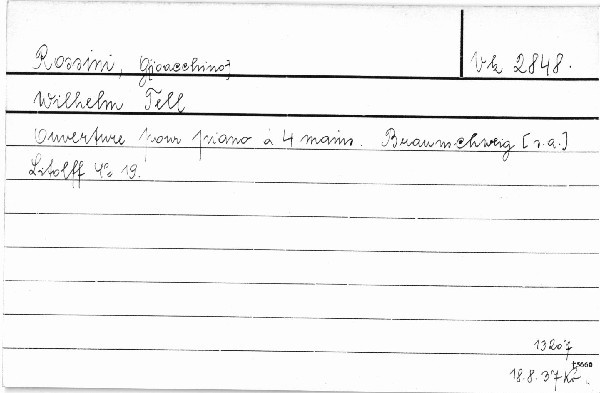 Rossini, Gioacchino;
Vk 2848.
Wilhelm Tell
Ouverture pour piano à 4 mains. Braunschweig [s.a.]
Litolff 4° 19.
13207
18.8.37 Kř.